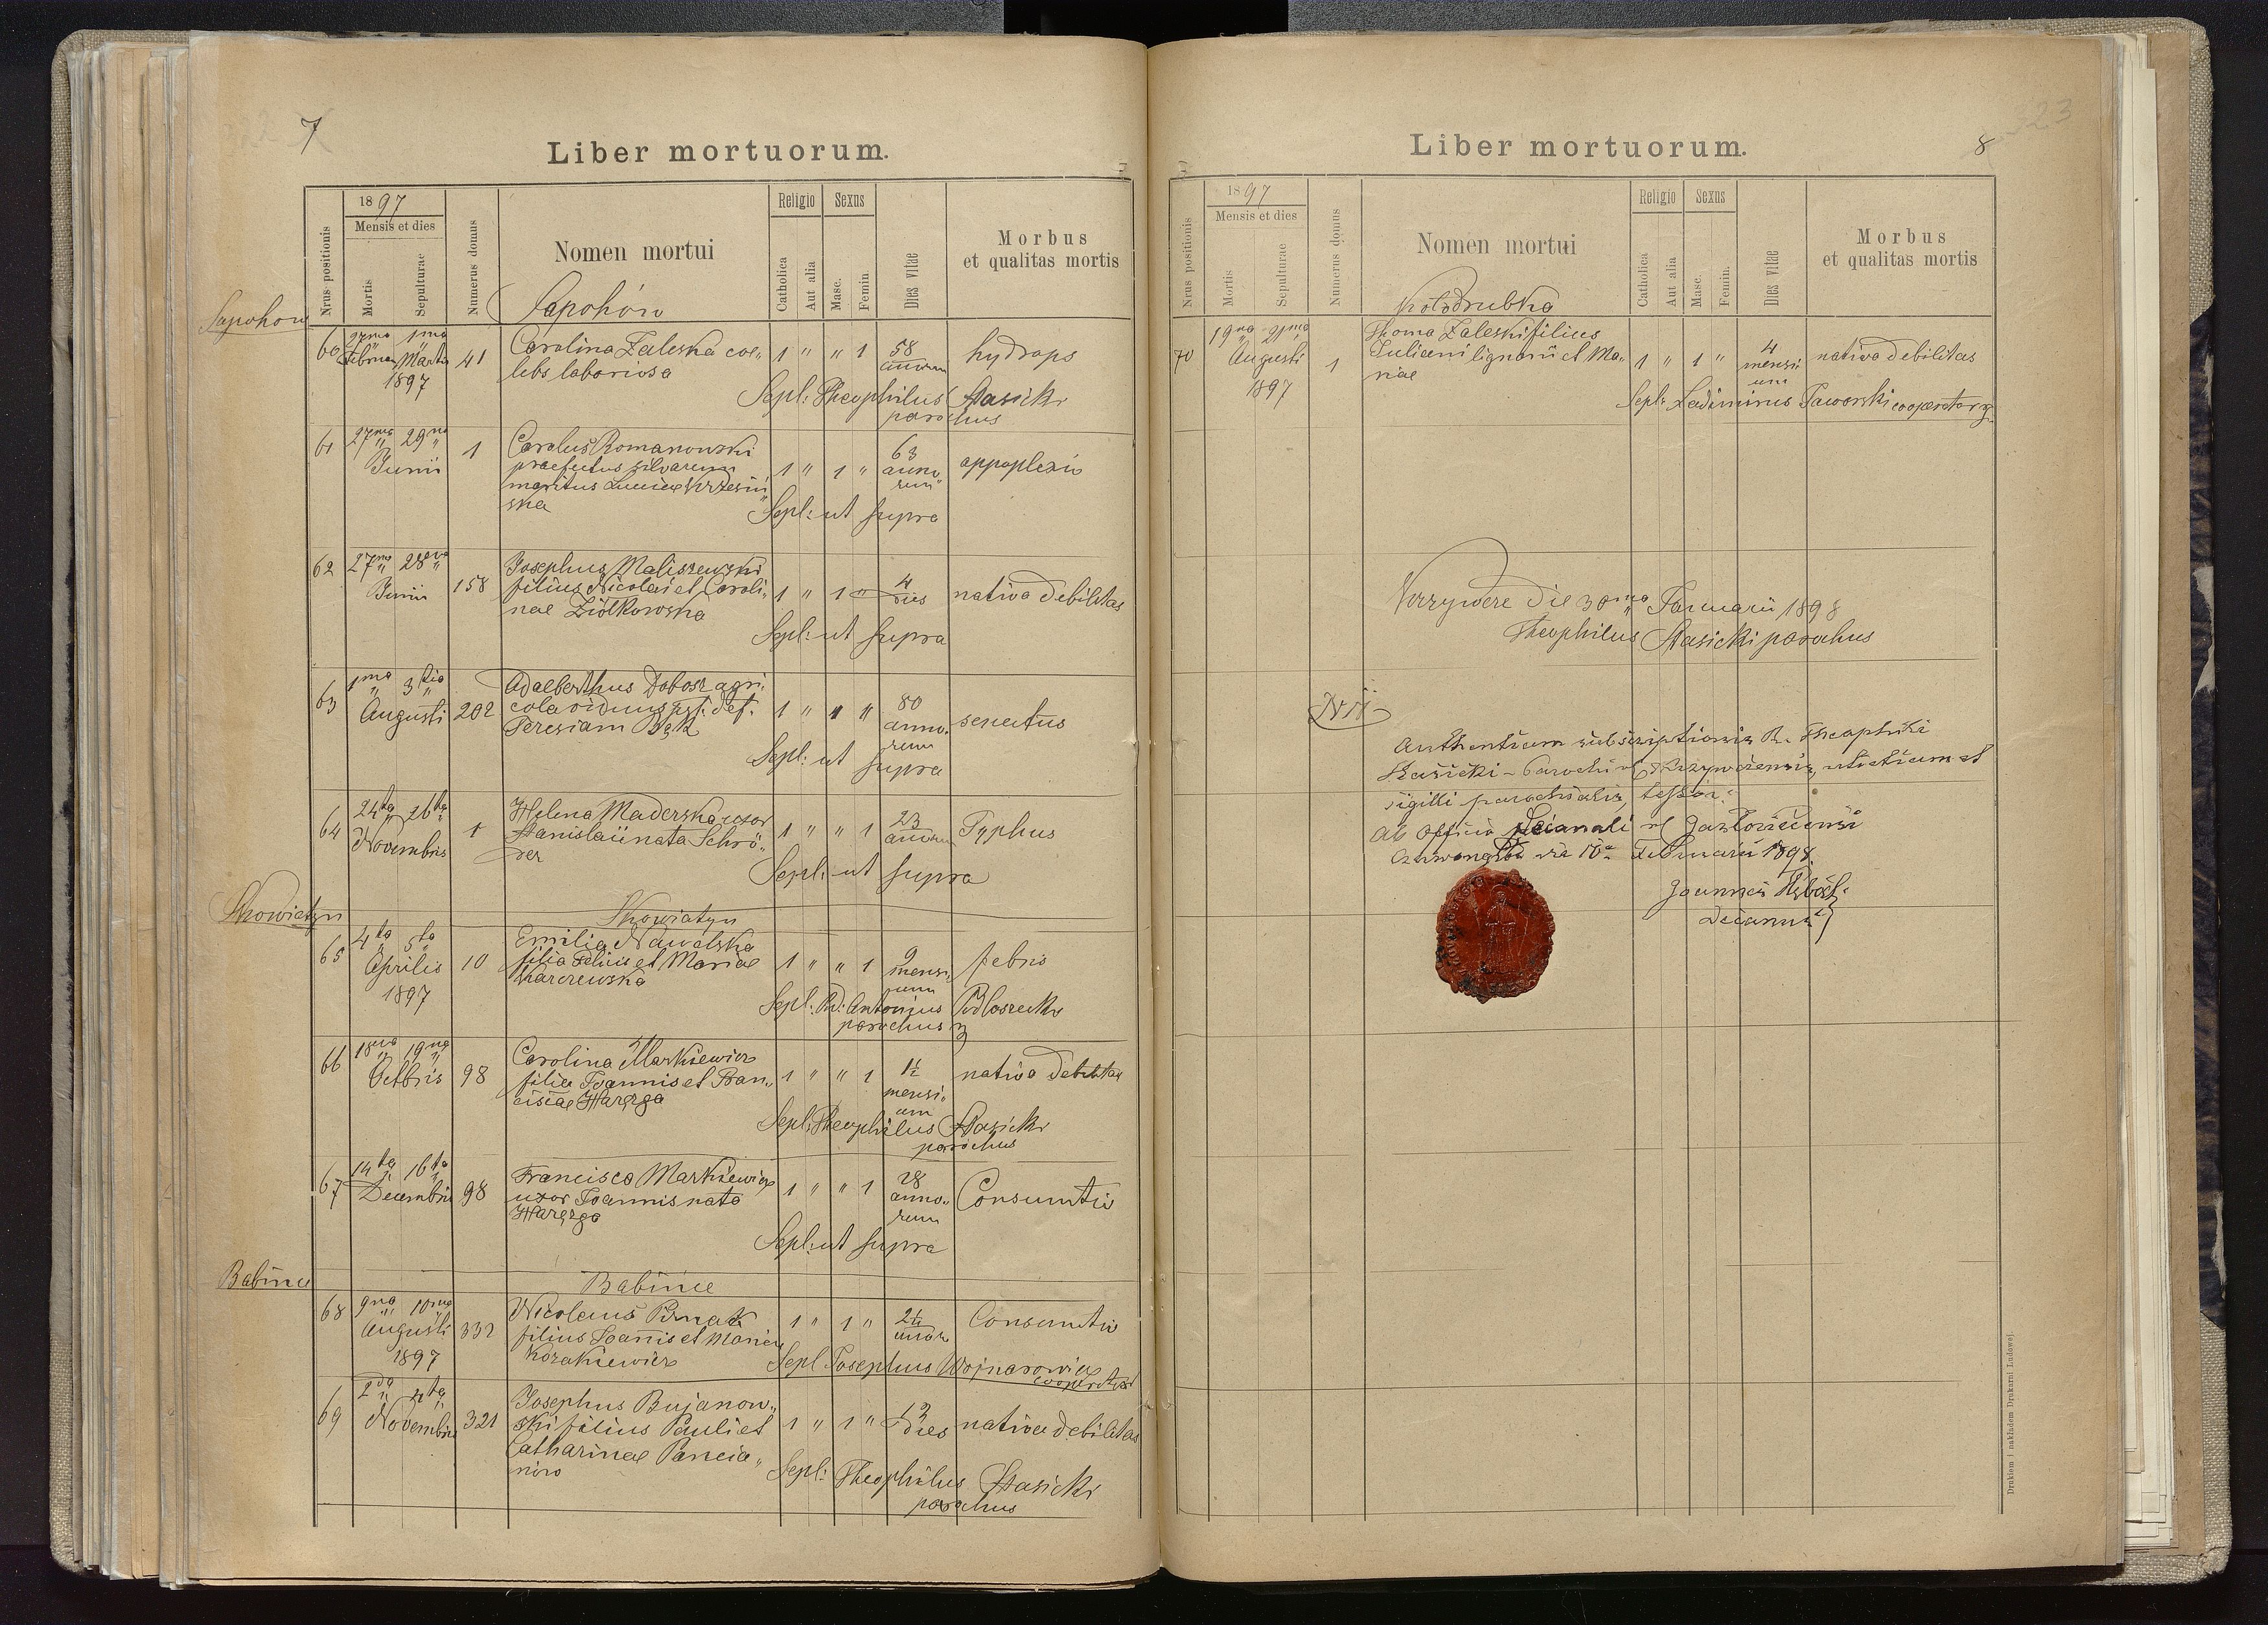 7
Liber mortuorum.
Nrus positionis
1897
Mensis et dies
Mortis
Sepulturae
Numerus domus
Nomen mortui
Religio
Catholica
Aut alia
Sexus
Masc.
Femin
Dies vitae
Morbus
et qualitas mortis
Sapohon
Sapohón
60 27ma 1ma
Februar Martii 41
1897
Carolina Zaleska coe„
lebs laboriosa
1 „ „ 1 58
annorum
hydrops
Sepl: Theophilus Stasicki
parochus
61 27ma 29na
Junii 1
Carolus Romanowski
praefectus silvarum
maritus Luciae Krzesiń„
ska
1 „ 1 „ 63
anno„
rum
appoplexia
Sepl: ut supra
62 27ma 28va
Junii 158
Josephus Maliszewski
filius Nicolai et Caroli„
nae Ziółkowska
1 „ 1 „ 4
dies
nativa debilitas
Sepl: ut supra
63 1ma 3tia
Augusti 202
Adalberthus Dobosz agri„
cola viduus pst. def.
Teresiam Bąk
1 „ 1 „ 80
anno„
rum
senectus
Sepl: ut supra
64 24ta 26ta
Novembris 1
Helena Maderska uxor
Stanislai nata Schrö„
der
1 „ „ 1 23
annorum
Typhus
Sepl: ut supra
Skowiatyn
Skowiatyn
65 4ta 5ta
Aprilis 10
1897
Emilia Nawalska
filia Felicis et Mariae
Charzewska
1 „ „ 1 9
mensi„
um
febris
Sepl: Rd: Antonius Podłosecki
parochus
66 18va 19na
Octbris 98
Carolina Markiewicz
filia Joannis et Fran„
cisiae Haręzga
1 „ „ 1 1½
mensi„
um
nativa debilitas
Sepl: Theophilus Stasicki
parochus
67 14ta 16ta
Decembris 98
Francisca Markiewicz
uxor Joannis nata
Haręzga
1 „ „ 1 28
anno„
rum
Consumtio
Sepl: ut supra
Babince
Babince
68 9na 10ma
Augusti 332
1897
Nicolaus
filius Joannis et Mariae
Kozakiewicz
1 „ 1 „ 2½
annor
Consumtio
Sepl Josephus Wojnarowicz
cooperator
69 2da 4ta
Novembris 321
Josephus Bujanow„
ski filius Pauli et
Catharinae
1 „ 1 „ 13
dies
nativa debilitas
Sepl: Theophilus Stasicki
parochus
8
Liber mortuorum.
Nrus positionis
1897
Mensis et dies
Mortis
Sepulturae
Numerus domus
Nomen mortui
Religio
Catholica
Aut alia
Sexus
Masc.
Femin.
Dies vitae
Morbus
et qualitas mortis
Kołodrubka
70 19na 21ma
Augusti 1
1897
Thoma Zaleski filius
Juliani lignarii et Ma„
riae
1 „ 1 „ 4
mensi„
um
nativa debilitas
Sepl: Ladimirus Jaworski cooperator
Krzywcze die 30ma Januarii 1898
Theophilus Stasicki parochus
Authenticam subscriptionis R. Theophili
Stasicki - Parochi Krzywcensis, et
sigilli parochialis, testor:
Ab officio Decanali Jazłoviecensi
die 10a Februarii 1898.
Joannes
Decanus
Drukiem i nakładem Drukarni Ludowej.